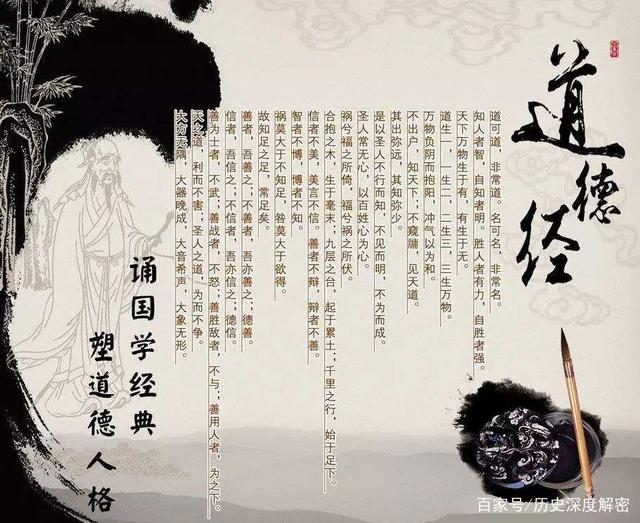 道德经
道可道，非常道。名可名，非常名。
知人者智，自知者明。胜人者有力，自胜者强。
天下万物生于有，有生于无。
道生一，一生二，二生三，三生万物。
万物负阴而抱阳，冲气以为和。
不出户，知天下；不窥牖，见天道。
其出弥远，其知弥少。
是以圣人不行而知，不见而明，不为而成。
圣人常无心，以百姓心为心。
祸兮福之所倚，福兮祸之所伏。
合抱之木，生于毫末；九层之台，起于累土；千里之行，始于足下。
信者不美，美言不信。善者不辩，辩者不善。
智者不博，博者不知。
祸莫大于不知足，咎莫大于欲得。
故知足之足，常足矣。
善者，吾善之；不善者，吾亦善之；德善。
信者，吾信之；不信者，吾亦信之；德信。
善为士者，不武；善战者，不怒；善胜敌者，不与；善用人者，为之下。
天之道，利而不害；圣人之道，为而不争。
大方无隅，大器晚成，大音希声，大象无形。
诵国学经典
塑道德人格
百家号/历史深度解密